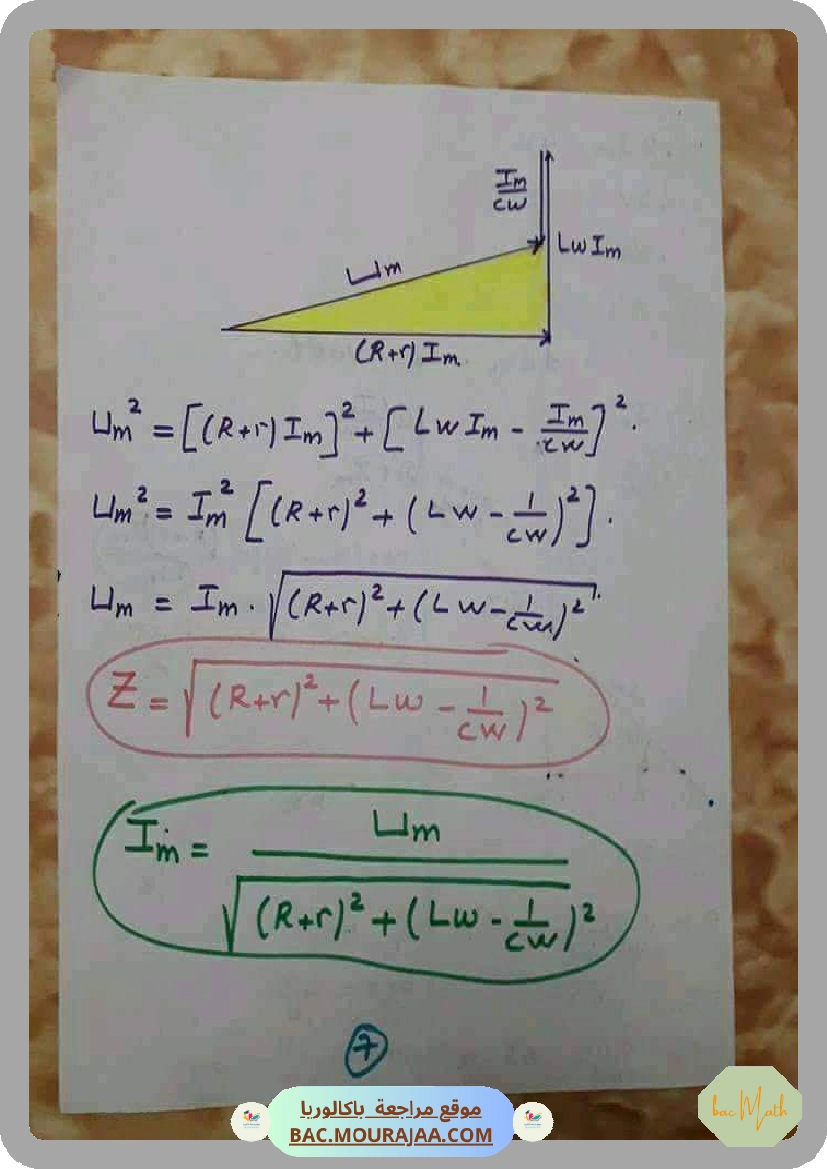 Im/cw
LwIm
Um
(R+r) Im
Um² = [(R+r) Im]² + [Lw Im - Im/cw]².
Um² = Im² [(R+r)² + (Lw - 1/cw)²].
Um = Im . √((R+r)² + (Lw - 1/cw)²)
Z = √((R+r)² + (Lw - 1/cw)²)
Im = Um / √((R+r)² + (Lw - 1/cw)²)
7
موقع مراجعة باكالوريا
BAC.MOURAJAA.COM
bac Math